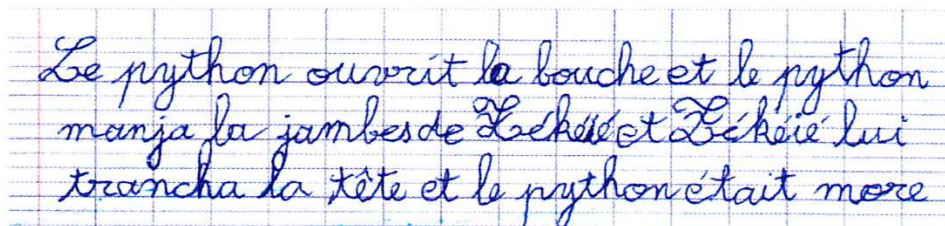 Le python ouvrit la bouche et le python
manja la jambes de Zékéié et Zékéié lui
trancha la tête et le python était more